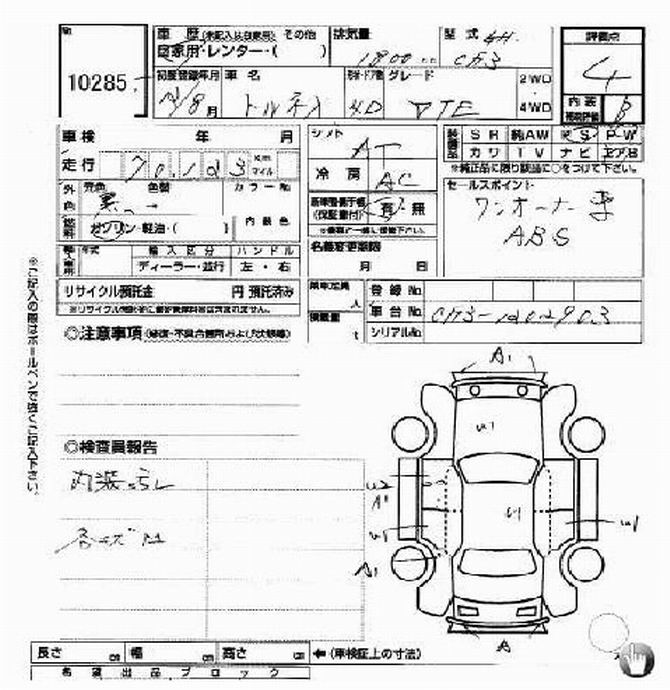 No.
10285
車歴 (未記入は自家用) その他
自家用・レンター・( )
排気量
1800 cc
型式
CF3
評価点
4
初度登録年月
8月
車名
トルネオ
ドア・形状 グレード
4D
VTE
2WD
4WD
内装
B
車検 年 月
走行
70,123
Km
マイル
シフト
AT
冷房
AC
装備品
SR 純AW PS PW
カワ TV ナビ エアB
※純正品に限り該当に○をつけて下さい。
外色
元色
黒
色替
カラーNo
燃料
ガソリン・軽油・( )
内装色
(保証書付)
有・無
セールスポイント
ワンオーナー車
ABS
輸入車用
年式
輸入区分
ハンドル
ディーラー・並行
左・右
名義変更期限
月 日
リサイクル預託金 円 預託済み
乗車定員
人
積載量
t
登録No.
車台No.
CF3-1202903
シリアルNo.
◎注意事項
◎検査員報告
内装汚レ
各キズ凹
A1
U1
U2
A1
U1
U1
U1
A1
B
※ご記入の際はボールペンで強くご記入下さい。
長さ cm 幅 cm 高さ cm ←(車検証上の寸法)
希望出品ブロック